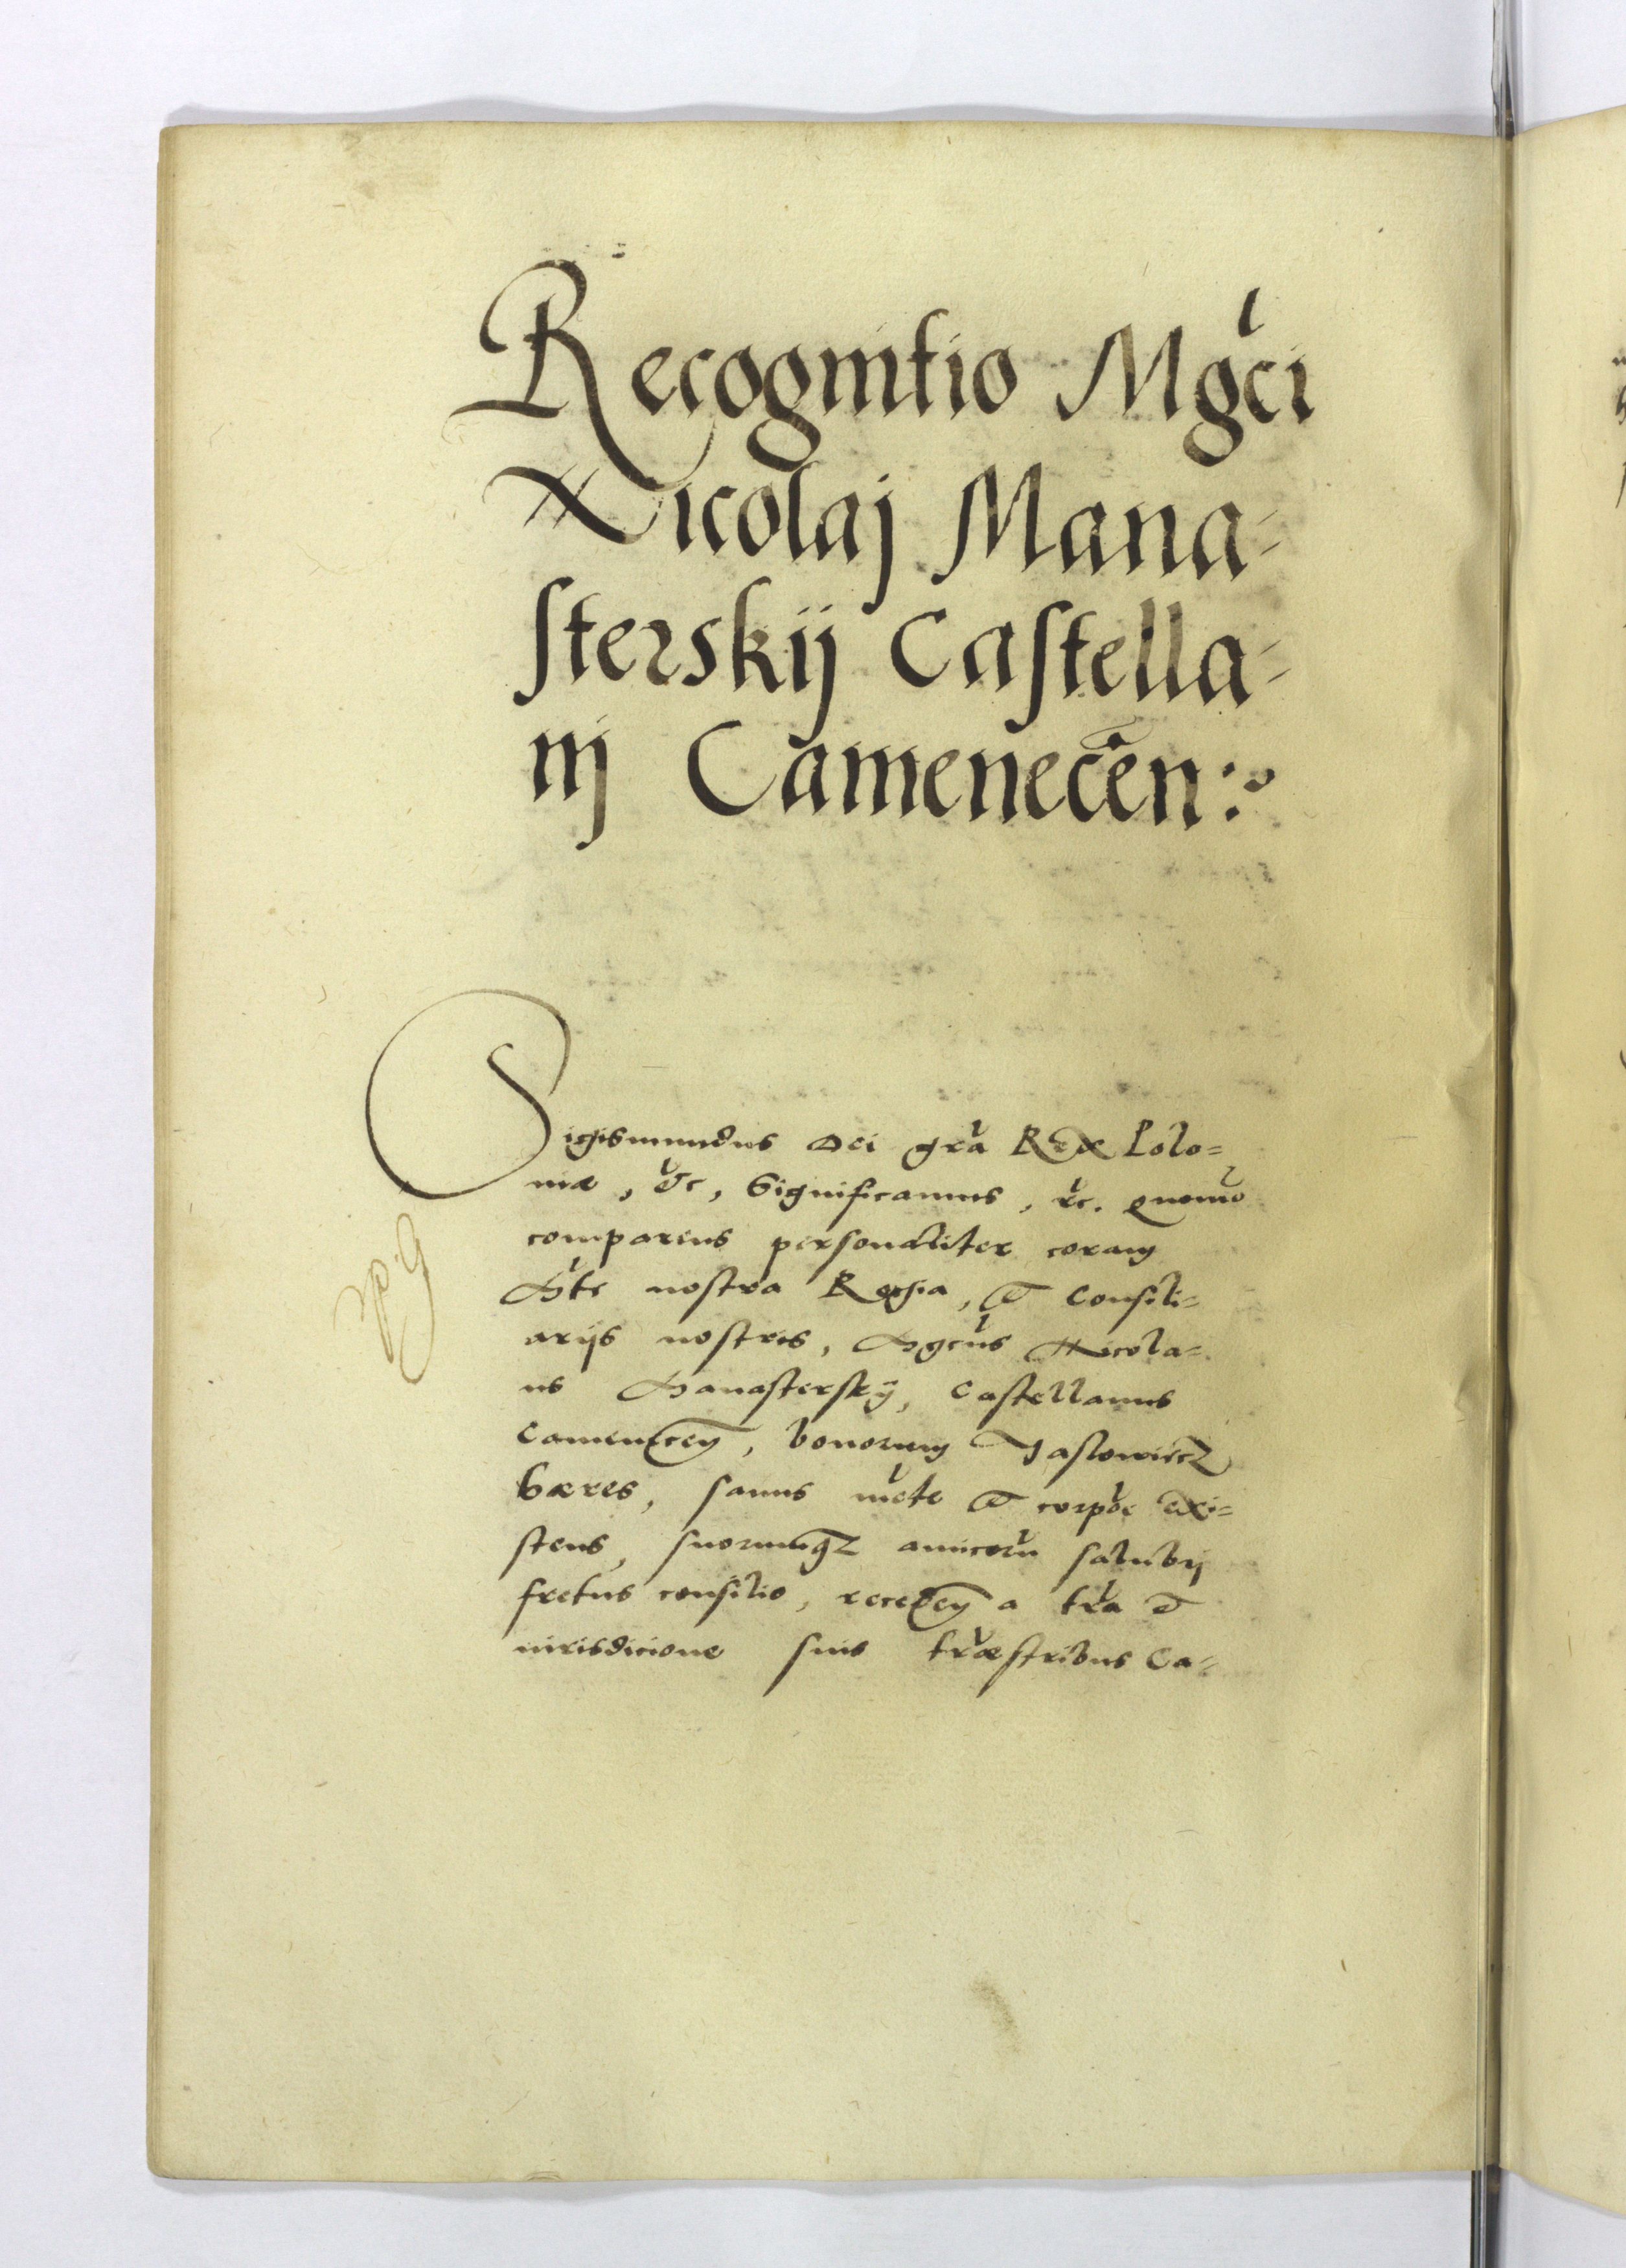 Recognitio Mgci
Nicolaj Mana=
sterskij Castella=
nj Camenecen:
Sigismundus Dei gra Rex Polo=
niæ, etc, Significamus, etc. quomo
comparens personaliter coram
Mte nostra Regia, et Consili=
arijs nostris, Mgcus Nicola=
us Manasterskij, Castellanus
Camenecen, bonorum Jaslowiecz
hæres, sanus mete et corpoe exi=
stens, suorumqz amicoru salubrj
fretus consilio, receden a tra et
iurisdicione suis træstribus Ca=